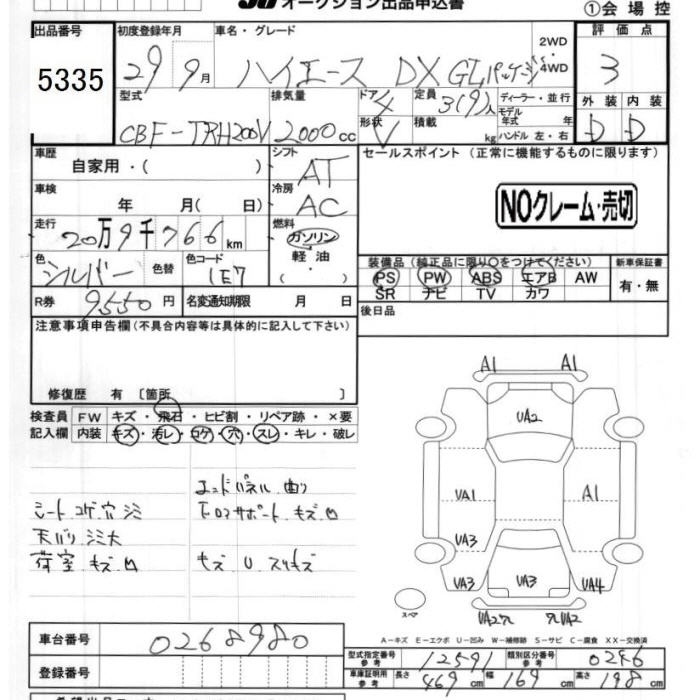 オークション出品申込書
①会場控
出品番号
5335
初度登録年月
29 9月
車名・グレード
ハイエース DX GLパッケージ
2WD
4WD
評価点
3
型式
CBF-TRH200V
排気量
2000cc
ドア
4
形状
V
定員
3(9)人
積載
kg
ディーラー・並行
モデル年式
ハンドル 左・右
外装 内装
D D
車歴
自家用・( )
シフト
AT
セールスポイント (正常に機能するものに限ります)
NOクレーム・売切
車検
年 月( 日)
冷房
AC
走行
20万9千766km
燃料
ガソリン
軽油
( )
色
シルバー
色替
色コード
1E7
装備品 (純正品に限り○をつけてください)
PS PW ABS エアB AW
SR ナビ TV カワ
新車保証書
有・無
R券
9550円
名変通知期限 月 日
後日品
注意事項申告欄(不具合内容等は具体的に記入して下さい)
修復歴 有 [箇所 ]
検査員
記入欄
FW キズ・飛石・ヒビ割・リペア跡・×要
内装 キズ・汚レ・コゲ・穴・スレ・キレ・破レ
エンドパネル 曲り
シート コゲ穴 シミ
下回サポート キズ凹
天バリ シミ大
荷室 キズ 凹
キズ U スリキズ
A1 A1
UA2
UA1 A1
UA3
UA3 UA3 UA4
スペア
UA2 UA2
A-キズ E-エクボ U-凹み W-補修跡 S-サビ C-腐食 XX-交換済
車台番号
0268980
登録番号
型式指定番号
参考
12591
類別区分番号
参考
0246
車庫証明用
参考
長さ 469cm 幅 169cm 高さ 198cm